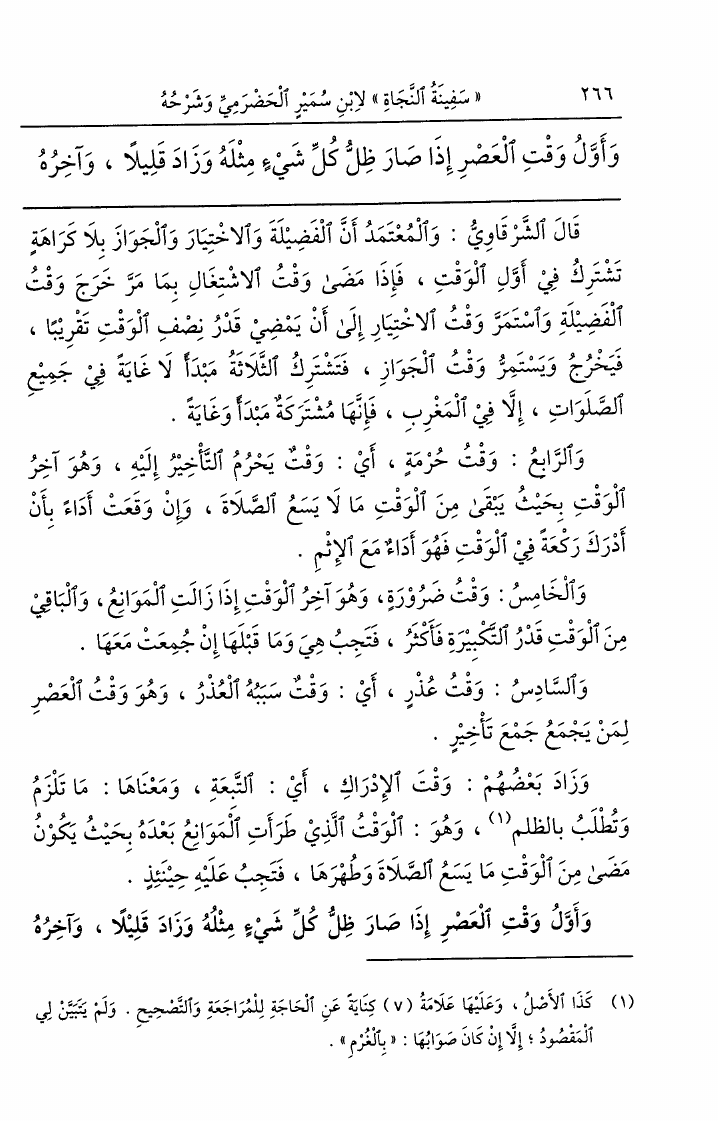 ٢٦٦ « سَفِينَةُ ٱلنَّجَاةِ » لِابْنِ سُمَيْرٍ ٱلْحَضْرَمِيِّ وَشَرْحُهُ
وَأَوَّلُ وَقْتِ ٱلْعَصْرِ إِذَا صَارَ ظِلُّ كُلِّ شَيْءٍ مِثْلَهُ وَزَادَ قَلِيلًا ، وَآخِرُهُ
قَالَ ٱلشَّرْقَاوِيُّ : وَٱلْمُعْتَمَدُ أَنَّ ٱلْفَضِيلَةَ وَٱلِاخْتِيَارَ وَٱلْجَوَازَ بِلَا كَرَاهَةٍ
تَشْتَرِكُ فِيْ أَوَّلِ ٱلْوَقْتِ ، فَإِذَا مَضَىٰ وَقْتُ ٱلِاشْتِغَالِ بِمَا مَرَّ خَرَجَ وَقْتُ
ٱلْفَضِيلَةِ وَٱسْتَمَرَّ وَقْتُ ٱلِاخْتِيَارِ إِلَىٰ أَنْ يَمْضِيْ قَدْرُ نِصْفِ ٱلْوَقْتِ تَقْرِيبًا ،
فَيَخْرُجُ وَيَسْتَمِرُّ وَقْتُ ٱلْجَوَازِ ، فَتَشْتَرِكُ ٱلثَّلَاثَةُ مَبْدَأً لَا غَايَةً فِيْ جَمِيْعِ
ٱلصَّلَوَاتِ ، إِلَّا فِيْ ٱلْمَغْرِبِ ، فَإِنَّهَا مُشْتَرَكَةٌ مَبْدَأً وَغَايَةً .
وَٱلرَّابِعُ : وَقْتُ حُرْمَةٍ ، أَيْ : وَقْتٌ يَحْرُمُ ٱلتَّأْخِيْرُ إِلَيْهِ ، وَهُوَ آخِرُ
ٱلْوَقْتِ بِحَيْثُ يَبْقَىٰ مِنَ ٱلْوَقْتِ مَا لَا يَسَعُ ٱلصَّلَاةَ ، وَإِنْ وَقَعَتْ أَدَاءً بِأَنْ
أَدْرَكَ رَكْعَةً فِيْ ٱلْوَقْتِ فَهُوَ أَدَاءٌ مَعَ ٱلْإِثْمِ .
وَٱلْخَامِسُ : وَقْتُ ضَرُوْرَةٍ، وَهُوَ آخِرُ ٱلْوَقْتِ إِذَا زَالَتِ ٱلْمَوَانِعُ، وَٱلْبَاقِيْ
مِنَ ٱلْوَقْتِ قَدْرُ ٱلتَّكْبِيْرَةِ فَأَكْثَرُ ، فَتَجِبُ هِيَ وَمَا قَبْلَهَا إِنْ جُمِعَتْ مَعَهَا .
وَٱلسَّادِسُ : وَقْتُ عُذْرٍ ، أَيْ : وَقْتٌ سَبَبُهُ ٱلْعُذْرُ ، وَهُوَ وَقْتُ ٱلْعَصْرِ
لِمَنْ يَجْمَعُ جَمْعَ تَأْخِيْرٍ .
وَزَادَ بَعْضُهُمْ : وَقْتَ ٱلْإِدْرَاكِ ، أَيْ : ٱلتَّبِعَةِ ، وَمَعْنَاهَا : مَا تَلْزَمُ
وَتُطْلَبُ بالظلم(١) ، وَهُوَ : ٱلْوَقْتُ ٱلَّذِيْ طَرَأَتِ ٱلْمَوَانِعُ بَعْدَهُ بِحَيْثُ يَكُوْنُ
مَضَىٰ مِنَ ٱلْوَقْتِ مَا يَسَعُ ٱلصَّلَاةَ وَطُهْرَهَا ، فَتَجِبُ عَلَيْهِ حِيْنَئِذٍ .
وَأَوَّلُ وَقْتِ ٱلْعَصْرِ إِذَا صَارَ ظِلُّ كُلِّ شَيْءٍ مِثْلُهُ وَزَادَ قَلِيْلًا ، وَآخِرُهُ
(١) كَذَا ٱلْأَصْلُ ، وَعَلَيْهَا عَلَامَةُ (٧) كِنَايَةً عَنِ ٱلْحَاجَةِ لِلْمُرَاجَعَةِ وَٱلتَّصْحِيحِ . وَلَمْ يَتَبَيَّنْ لِي
ٱلْمَقْصُودُ ؛ إِلَّا إِنْ كَانَ صَوَابُهَا : « بِٱلْغُرْمِ » .